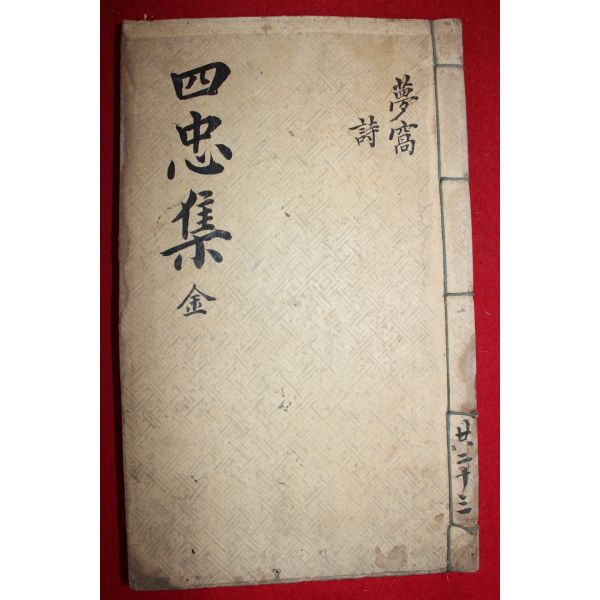 共二十三
夢窩
詩
四忠集 金